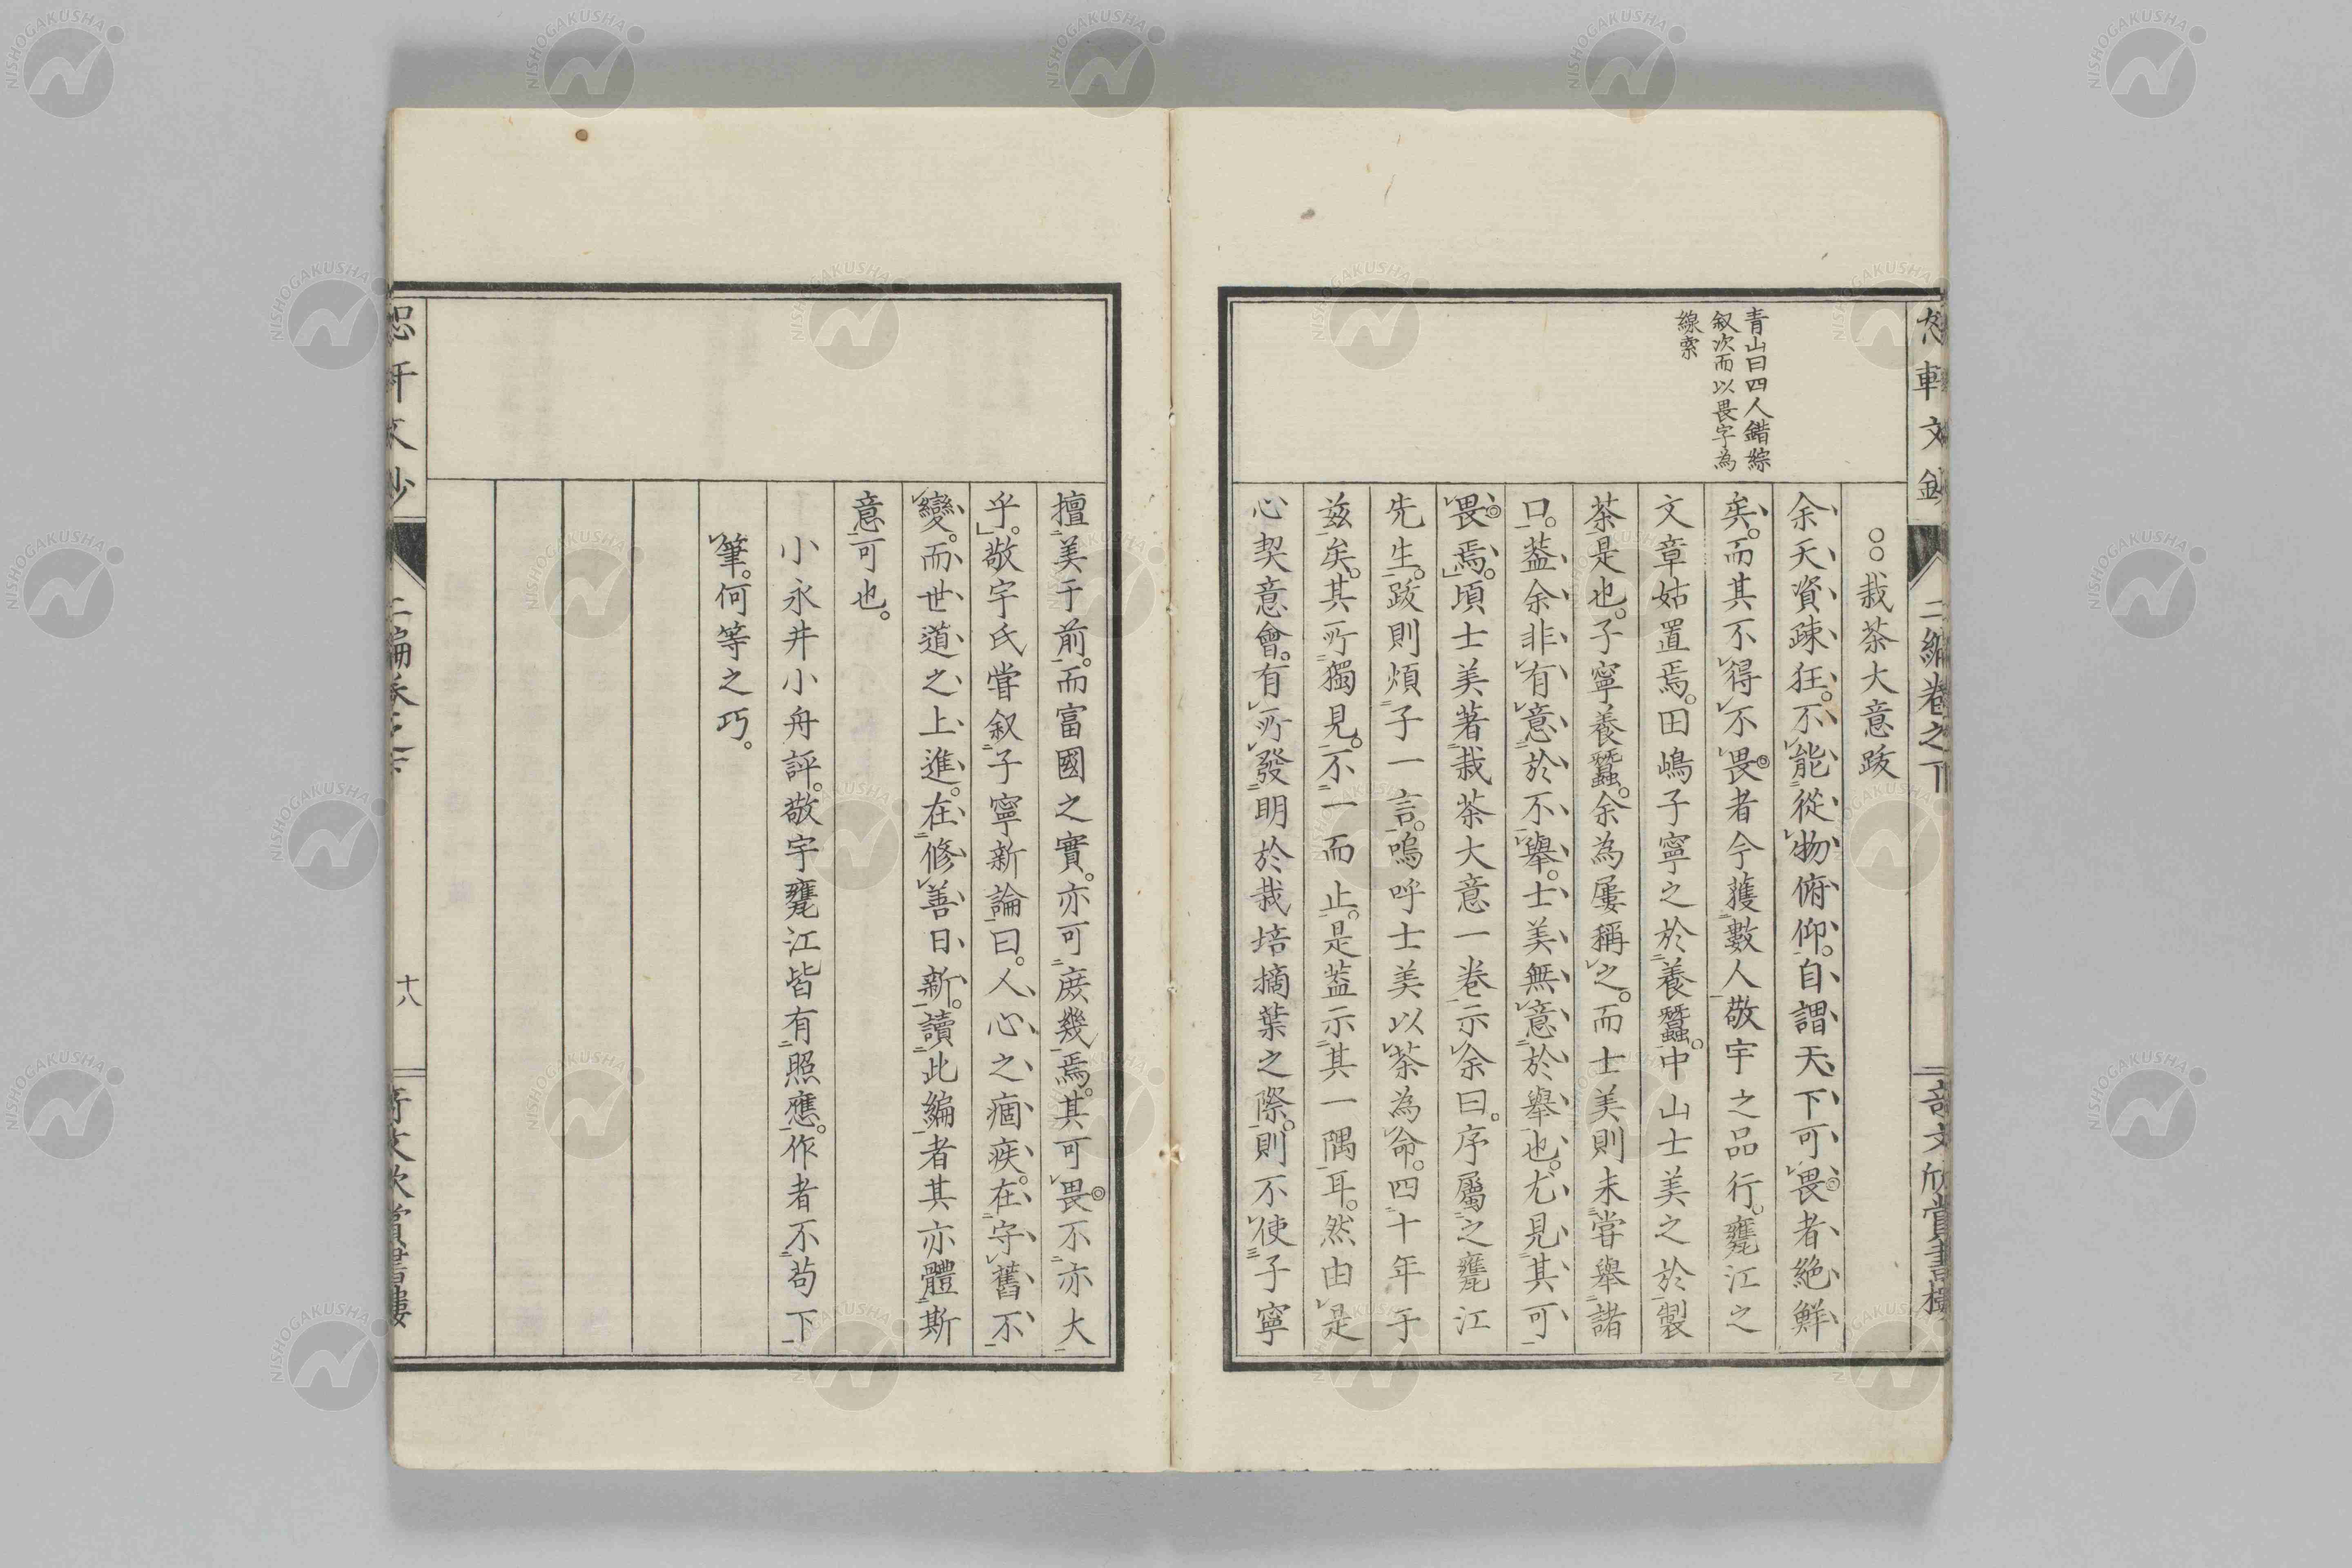 恕軒文鈔
二編卷之下
奇文欣賞書樓
青山曰四人錯綜
叙次而以畏字為
線索
○○栽茶大意跋
余天資疎狂。不能從物俯仰。自謂天下可畏者絶鮮
矣。而其不得不畏者今獲數人敬宇之品行。甕江之
文章姑置焉。田嶋子寧之於養蠶。中山士美之於製
茶是也。子寧養蠶。余為屢稱之。而士美則未嘗舉諸
口。葢余非有意於不舉。士美無意於舉也。尤見其可
畏焉。頃士美著栽茶大意一巻示余曰。序屬之甕江
先生。跋則煩子一言。嗚呼士美以茶為命。四十年于
玆矣。其所獨見。不一而止。是葢示其一隅耳。然由是
心契意會。有所發明於栽培摘葉之際。則不使子寧
擅美于前。而富國之實。亦可庶幾焉。其可畏不亦大
乎。敬宇氏嘗叙子寧新論曰。人心之痼疾。在守舊不
變。而世道之上進。在修善日新。讀此編者其亦體斯
意可也。
小永井小舟評。敬宇甕江皆有照應。作者不苟下
筆。何等之巧。
恕軒文鈔
二編卷之下
十八
奇文欣賞書樓
NISHOGAKUSHA